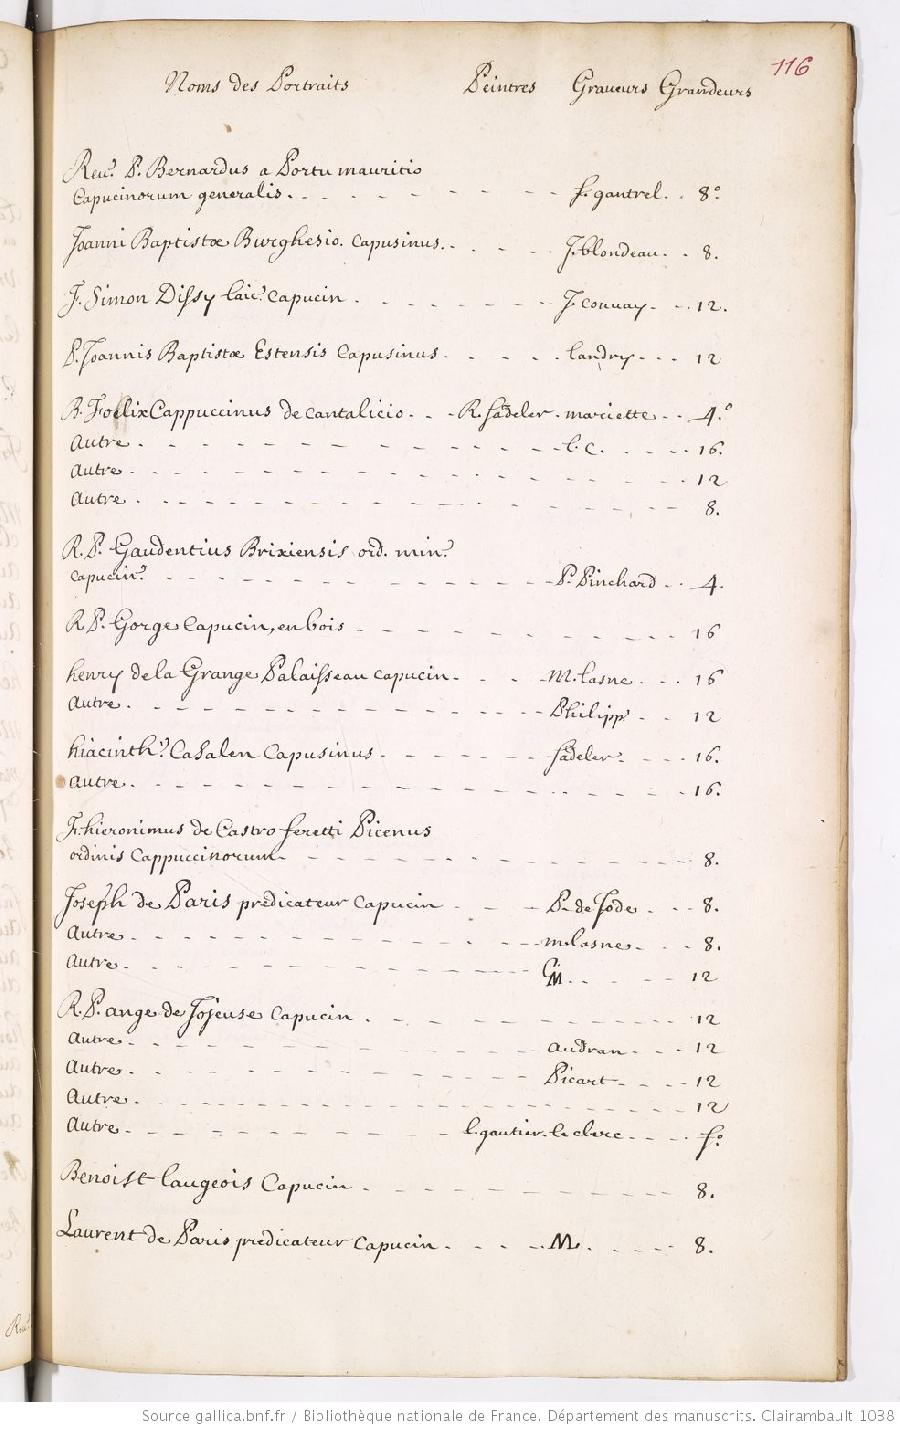 116
Noms des Portraits Peintres Graveurs Grandeurs
Reu.ᵈ P. Bernardus a Portu mauritio
Capucinorum generalis. f. gantrel. 8.°
Joanni Baptistæ Burghesio. Capusinus. J. blondeau. 8.
F. Simon Dissy laic. Capucin J. couuay 12.
P. Joannis Baptistæ Estensis Capusinus landry 12
B. Foelix Cappuccinus de Cantalicio R. sadeler. mariette 4.°
autre l. C. 16.
autre 12
autre 8.
R. P. Gaudentius Brixiensis ord. min.
capucin. P. Pinchard 4.
R. P. Gorge Capucin, en bois 16
henry de la Grange Palaisseau capucin. M. lasne 16
autre. Philipp. 12
hiacinth. Casalen Capusinus. sadeler. 16.
autre 16.
F. hieronimus de Castro feretti Picenus
ordinis Cappuccinorum 8.
Joseph de Paris predicateur Capucin P. de Jode 8.
autre m. lasne 8.
autre. M. 12
R. P. ange de Joieuse Capucin. 12
autre. audran 12
autre. Picart 12
autre. 12
autre. l. gautier. le clerc f.°
Benoist laugeois Capucin 8.
Laurent de Paris predicateur Capucin. M. 8.
Source gallica.bnf.fr / Bibliothèque nationale de France. Département des manuscrits. Clairambault 1038